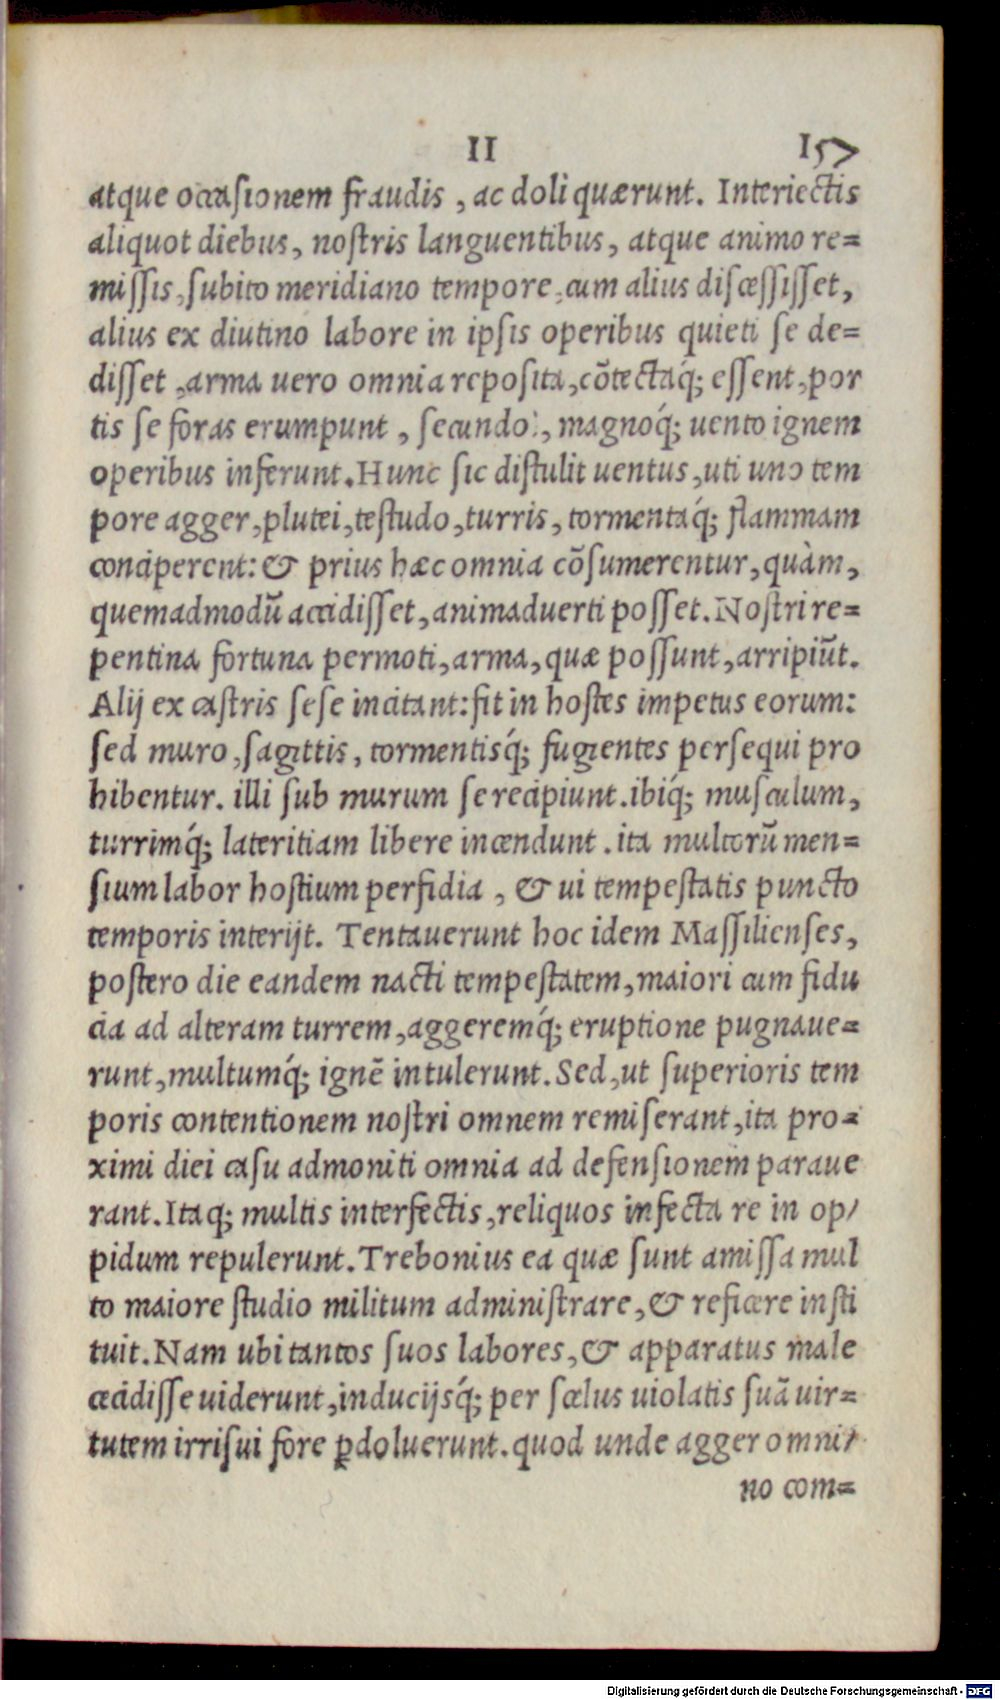 II 157
atque occasionem fraudis, ac doli quærunt. Interiectis
aliquot diebus, nostris languentibus, atque animo re=
missis, subito meridiano tempore, cum alius discessisset,
alius ex diutino labore in ipsis operibus quieti se de=
disset, arma uero omnia reposita, cõtectaq́; essent, por
tis se foras erumpunt, secundo, magnoq́; uento ignem
operibus inferunt. Hunc sic distulit uentus, uti uno tem
pore agger, plutei, testudo, turris, tormentaq́; flammam
conciperent: & prius hæc omnia cõsumerentur, quàm,
quemadmodũ accidisset, animaduerti posset. Nostri re=
pentina fortuna permoti, arma, quæ possunt, arripiũt.
Alij ex castris sese incitant: fit in hostes impetus eorum:
sed muro, sagittis, tormentisq́; fugientes persequi pro
hibentur. illi sub murum se recipiunt. ibiq́; musculum,
turrimq́; lateritiam libere incendunt. ita multorũ men=
sium labor hostium perfidia, & ui tempestatis puncto
temporis interijt. Tentauerunt hoc idem Massilienses,
postero die eandem nacti tempestatem, maiori cum fidu
cia ad alteram turrem, aggeremq́; eruptione pugnaue=
runt, multumq́; ignẽ intulerunt. Sed, ut superioris tem
poris contentionem nostri omnem remiserant, ita pro=
ximi diei casu admoniti omnia ad defensionem paraue
rant. Itaq; multis interfectis, reliquos infecta re in op/
pidum repulerunt. Trebonius ea quæ sunt amissa mul
to maiore studio militum administrare, & reficere insti
tuit. Nam ubi tantos suos labores, & apparatus male
cecidisse uiderunt, inducijsq́; per scelus uiolatis suã uir=
tutem irrisui fore ꝑdoluerunt. quod unde agger omni/
no com=
Digitalisierung gefördert durch die Deutsche Forschungsgemeinschaft - DFG